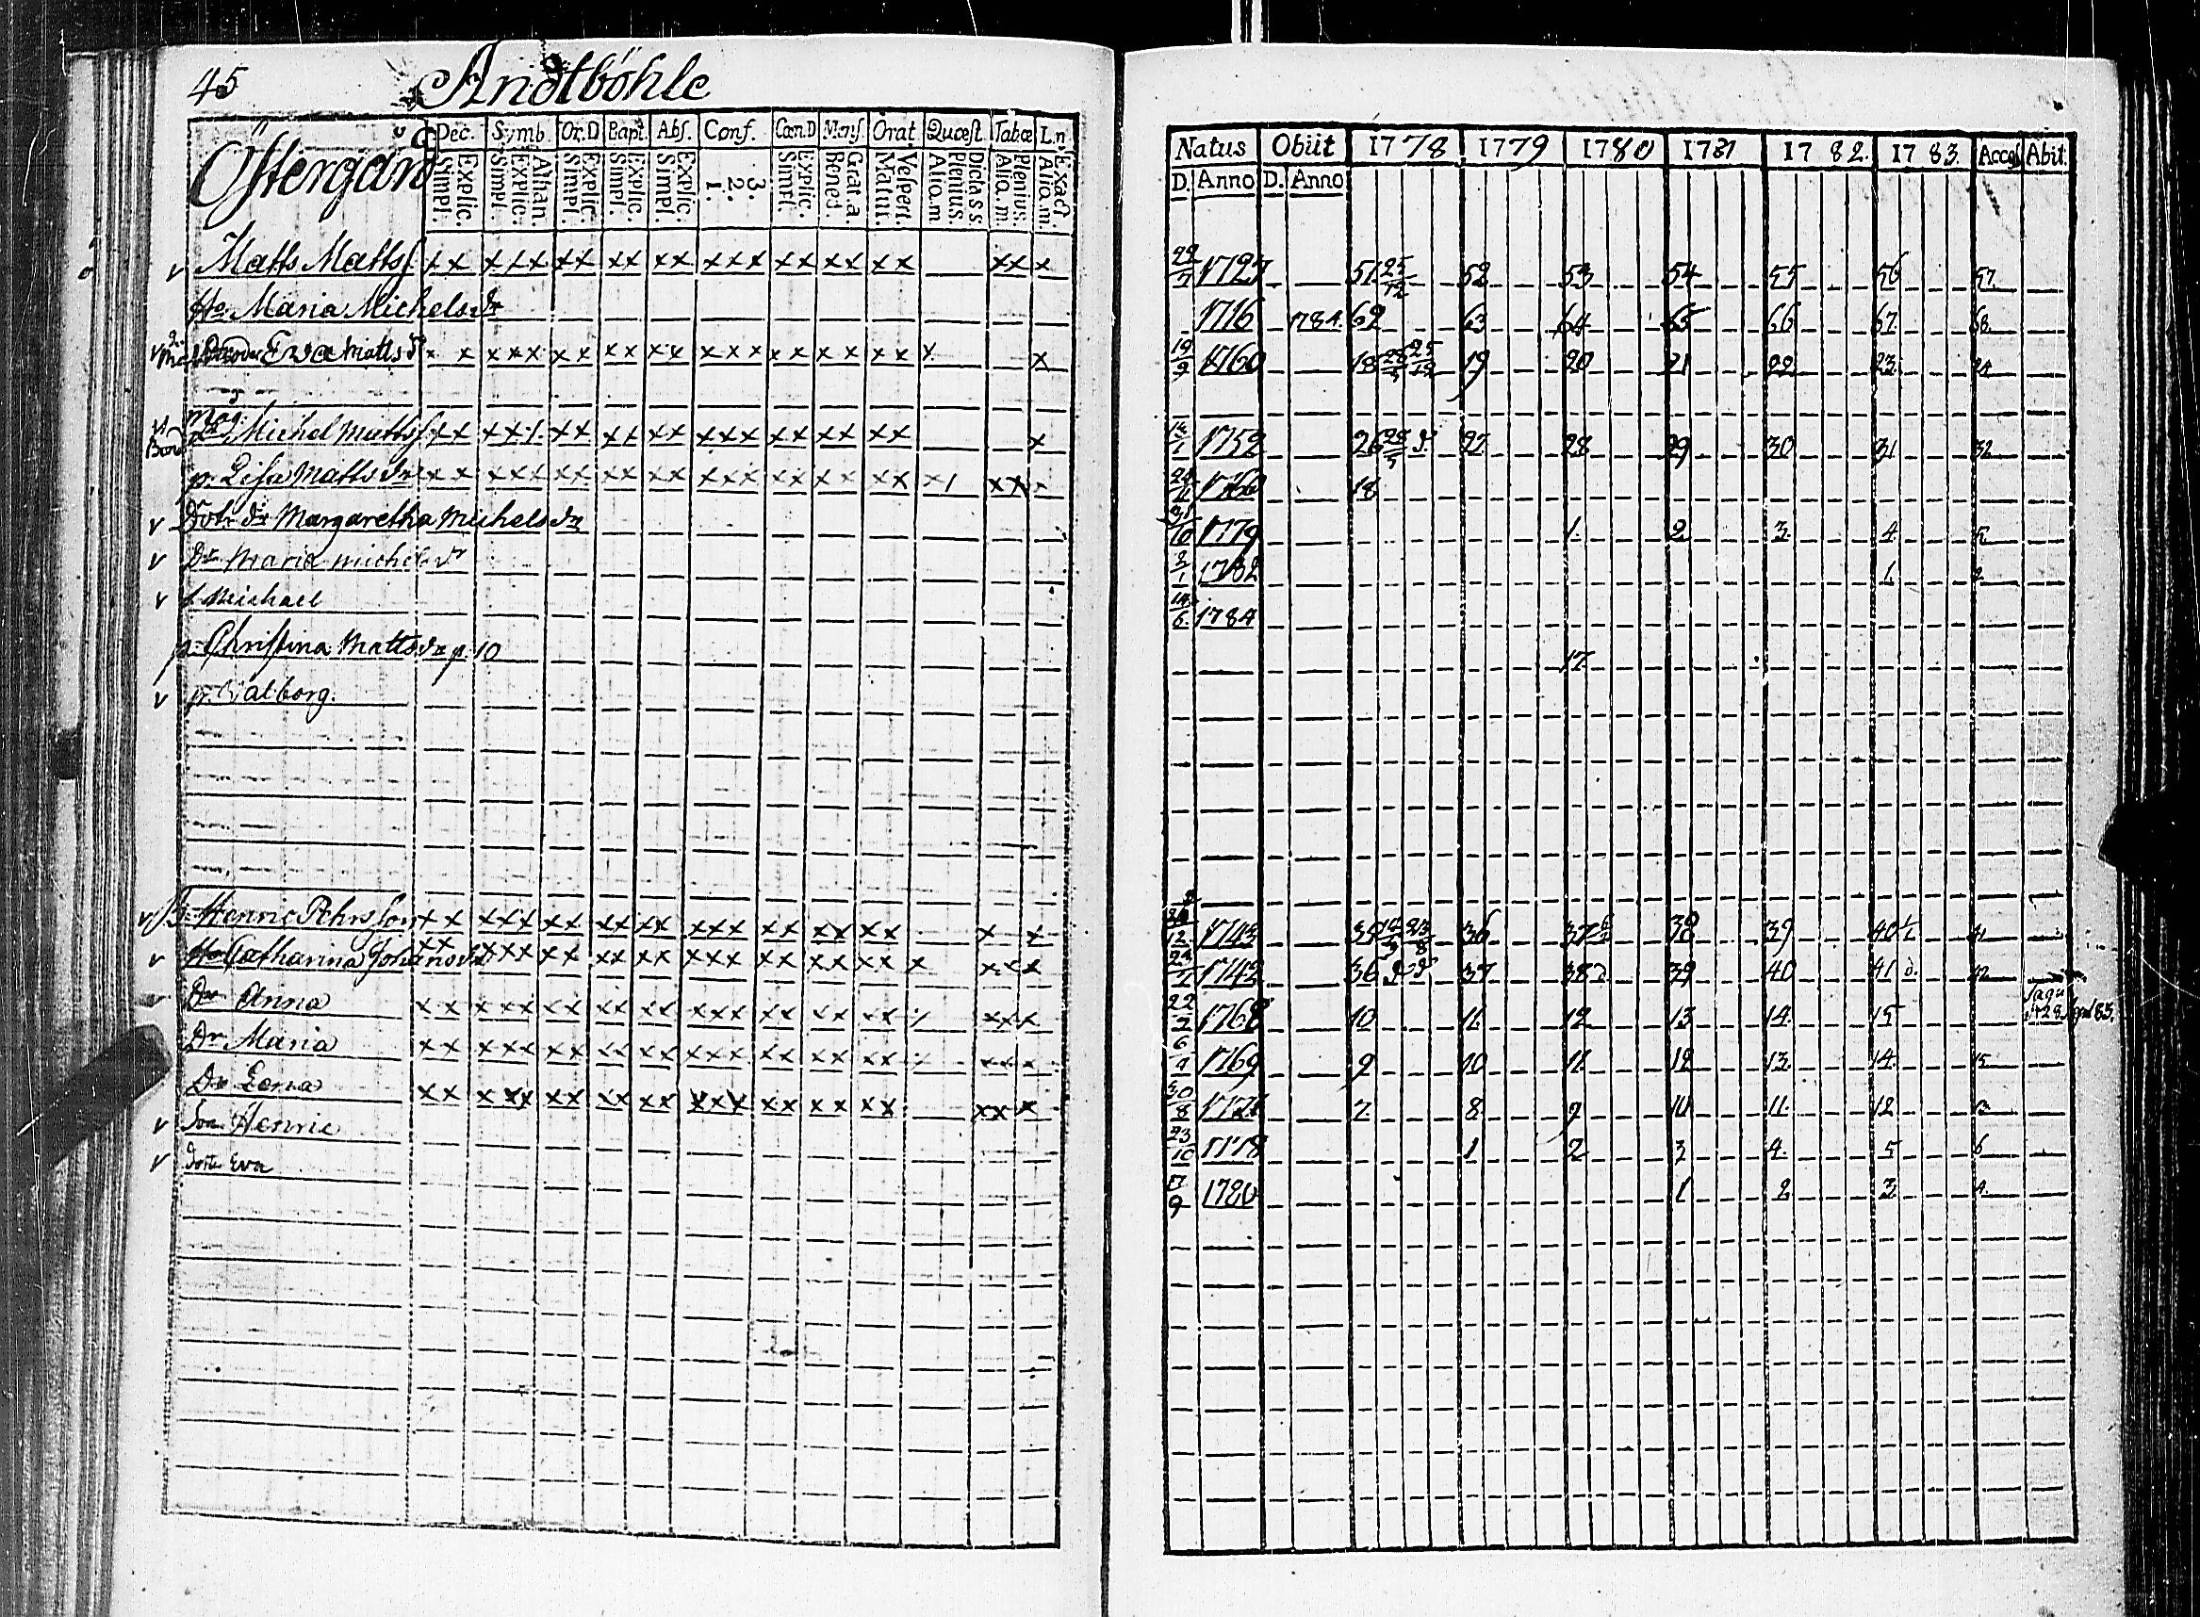 45 Andtböhle
Östergård
Dec. Symb. Or.D Bapt. Abs. Conf. Cœn.D Mens. Orat. Quæst. Tabæ L.n.
Simpl. Explic. Simpl. Explic. Athan. Simpl. Explic. Simpl. Explic. Simpl. Explic. 1. 2. 3. Simpl. Explic. Bened. Grat.a. Matut. Vespert. Alia.m. Plenius. Dicta s s. Alia.m. Plenius. Alia.m. Exact
v Matts Mattsf. x x x x x x x x x x x x x x x x x x x x x x x
Ho. Maria Michelsdr
Eva Matts dr x x x x x x x x x x x x x x x x x x x x x
mag.
Michel Mattsf. x x x x x x x x x x x x x x x x x x x x
p. Lisa Matts dr x x x x x x x x x x x x x x x x x x x x x x x
v Dotr dr Margaretha Michelsdr
v Dr Maria michels dr
v f. Michael
p. Christina Mattsdr p. 10
v p. Valborg.
v B. Henric Pehrsson x x x x x x x x x x x x x x x x x x x x x
v Ho Catharina Johansdr x x x x x x x x x x x x x x x x x x x x x x x
Dr Anna x x x x x x x x x x x x x x x x x x x x x x x
Dr Maria x x x x x x x x x x x x x x x x x x x x x x x
Dr Lena x x x x x x x x x x x x x x x x x x x x x x
v Son Henric
v dotter Eva
Natus Obiit 1778 1779 1780 1781 1782. 1783. Acces. Abit.
D. Anno D. Anno
22/9 1727 51 25/12 52 53 54 55 56 57.
1716 1784. 62 63 64 65 66 67. 68.
19/9 1760 18 25/12 19 20 21 22 23 24
1752 26 27. 28 29 30 31 32
1760 18
1779 1. 2 3. 4.
3/1 1782 1. 2
14/6 1784
17.
12 1743 35 36 37 38 39 40 41
1742 36 37 38 39 40 41 42
22 1768 10 11. 12 13 14. 15 28 April 83.
6 1769 9 10 11. 12 13. 14. 15
30/8 1771 7 8. 9 10 11. 12 13
23/10 1778 1 2 3 4. 5 6
17/9 1780 1 2 3 4.